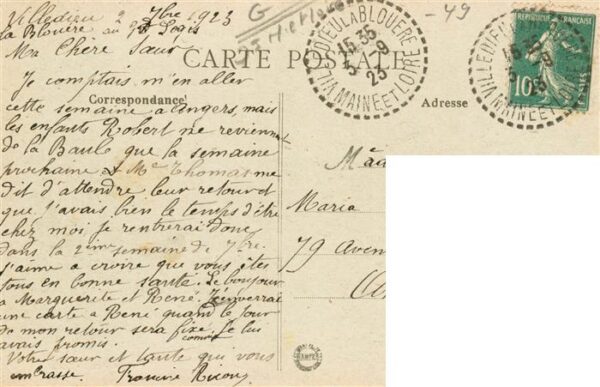 Villedieu 2 7bre 1923
la Blouère au Logis
Ma Chère Sœur
G
-49
CARTE POSTALE
Correspondance
Adresse
VILLEDIEU LA BLOUERE
15 35
5 -9
23
MAINE ET LOIRE
REPUBLIQUE FRANÇAISE
10
POSTES
Je comptais m'en aller
cette semaine a Angers, mais
les enfants Robert ne reviennent
de la Baule que la semaine
prochaine et Me Thomas me
dit d'attendre leur retour et
que j'avais bien le temps d'être
chez moi je rentrerai donc
dans la 2ème semaine de 7bre.
J'aime a croire que vous êtes
tous en bonne santé. Le bonjour
a Marguerite et René. J'enverrai
une carte a René quand le jour
de mon retour sera fixé. Je lui
avais promis.
Votre sœur et tante qui vous
embrasse.
Maria
79 Aven